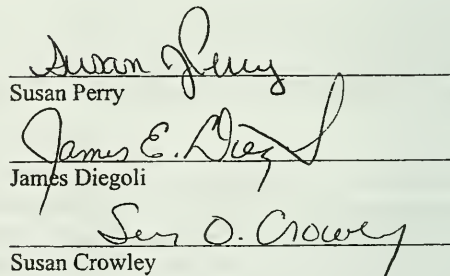 Susan J Perry
Susan Perry
James E. Diegoli
James Diegoli
O. Crowley
Susan Crowley